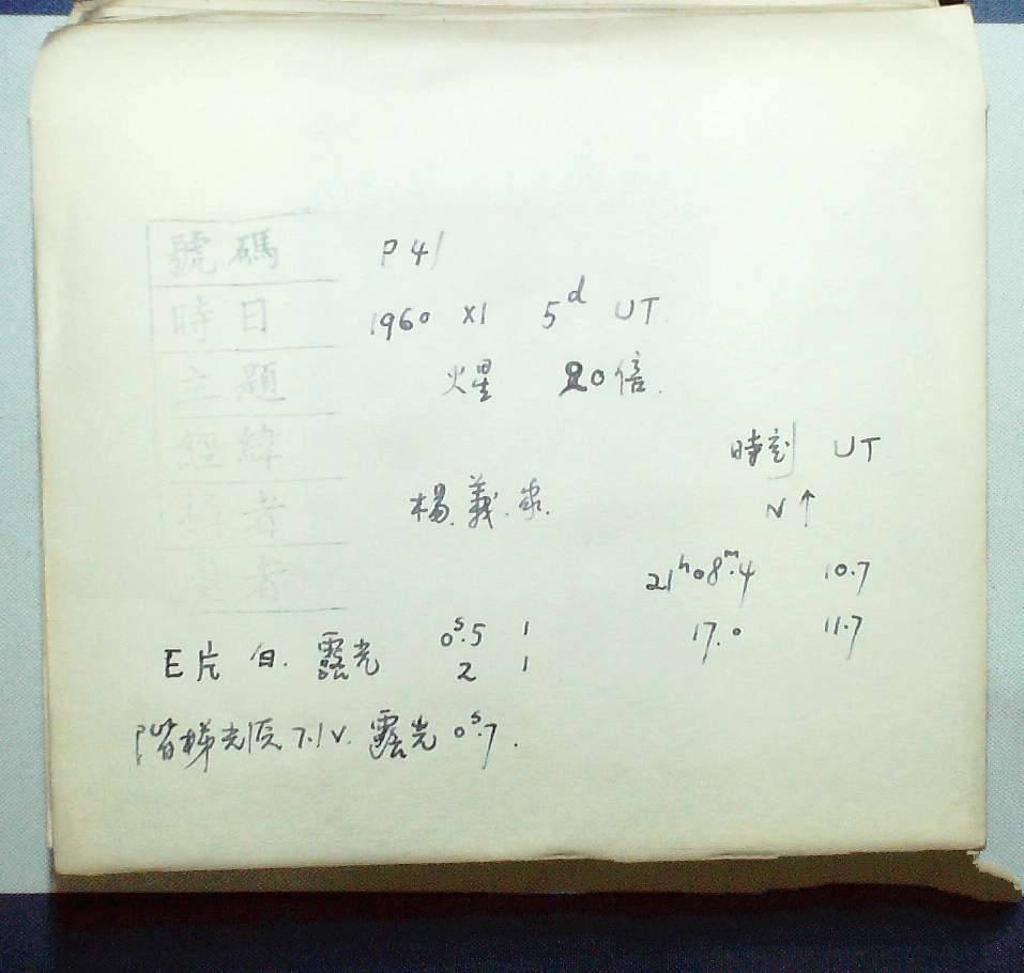 號碼 P 41
時日 1960 XI 5d UT
主題 火星 20倍.
經緯
時刻 UT
者 楊.義.
N↑
者
21h08m.4 10.7
17.0 11.7
E片 白. 露光 0s.5 1
2 1
階梯光源 7.1V. 露光 0s.7.